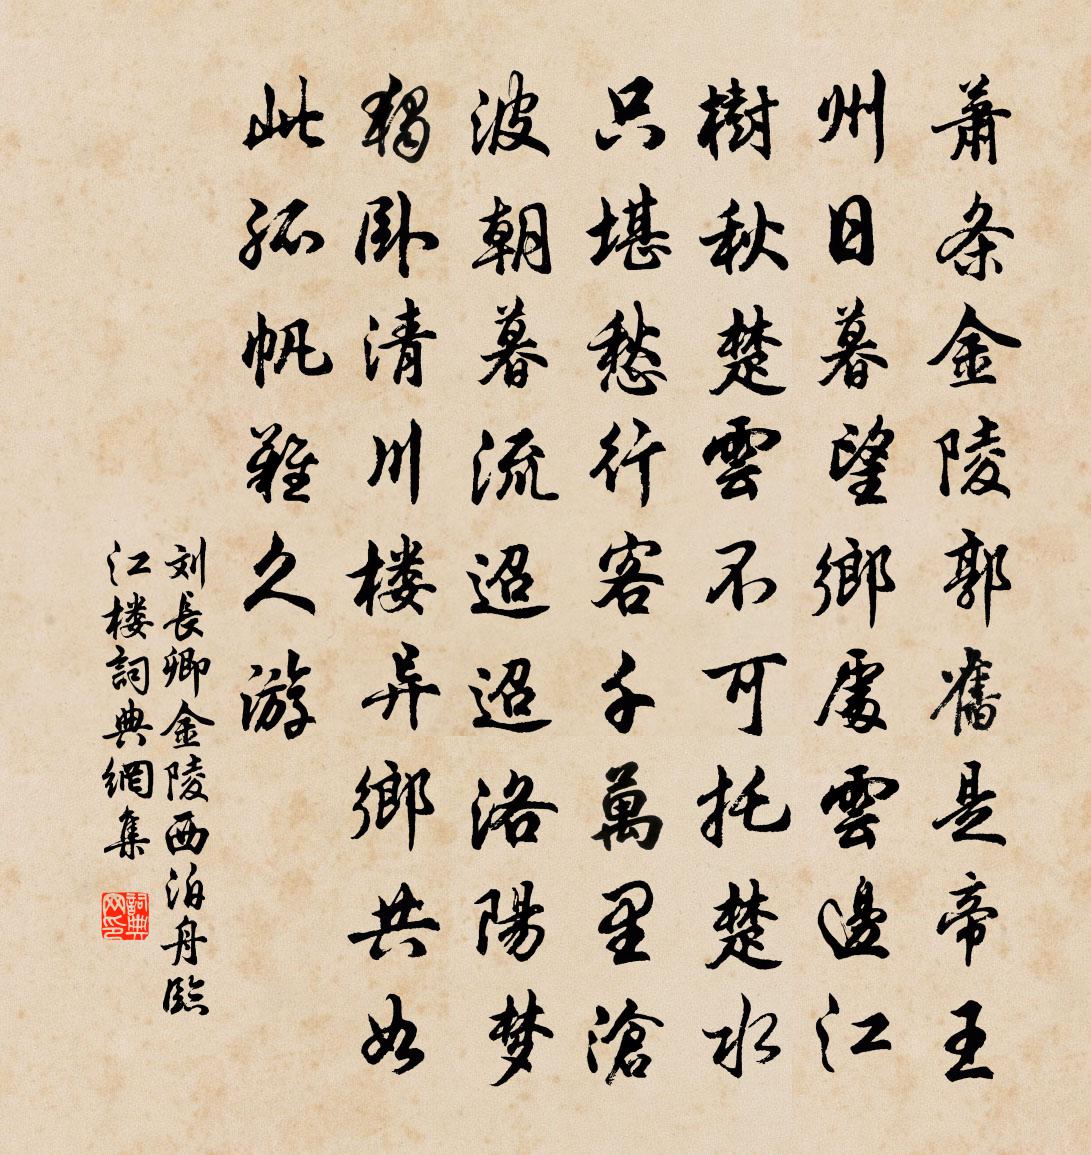 蕭条金陵郭舊是帝王
州日暮望鄉處雲邊江
樹秋楚雲不可托楚水
只堪愁行客千萬里滄
波朝暮流迢迢洛陽梦
獨卧清川楼异鄉共如
此孤帆難久游
刘長卿金陵西泊舟臨
江楼詞典網集
詞典网印